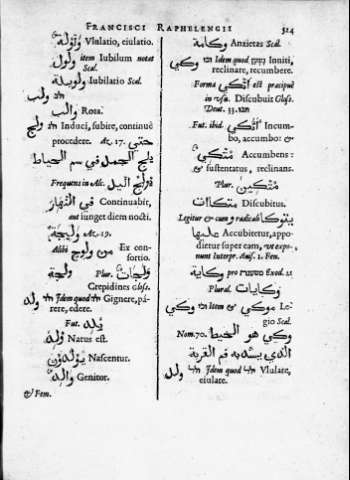 FRANCISCI RAPHELENGII 524
وَلْوَلَة Vlulatio, eiulatio.
ولول item Iubilum notat
Scal.
ولويلة Iubilatio Scal.
ולב ولب
والب Rota.
ولج Induci, subire, continuè
procedere. Ac. 17. حتى
يلج الجمل في سم الخياط
Frequens in Alc. يولج اليل
في النهار Continuabit,
aut iunget diem nocti.
وليجة Ac. 19.
Alibi من ولوج Ex con-
sortio.
ولجة Plur. ولجات
Crepidines Gloss.
ولد Idem quod ילד Gignere, pa-
rere, edere.
Fut. يلد
ولد Natus est.
يولدون Nascentur.
والد Genitor.
& Fem.
وكامة Anxietas Scal.
وكي Idem quod Inniti,
reclinare, recumbere.
Forma اتكى est præcipuè
in usu. Discubuit Gloss.
Deut. 33.
Fut. ibid. اتكى Incum-
bo, accumbo: &
متكي Accumbens:
& sustentatus, reclinans.
Plur. متكين
متكاات Discubitus.
Legitur & cum و radicali يتوكا
عليها Accubitetur, appo-
dietur super eam, vt expo-
nunt Interpr. Auis. 1. Fen.
وكاية pro Exod. 21
Plural. وكايات
وكي Item & موكي Le-
gio Scal.
Nom. 70. وكي هو الخيط
الذي يشد به فم القربة
ولد Idem quod Vlulare,
eiulare.